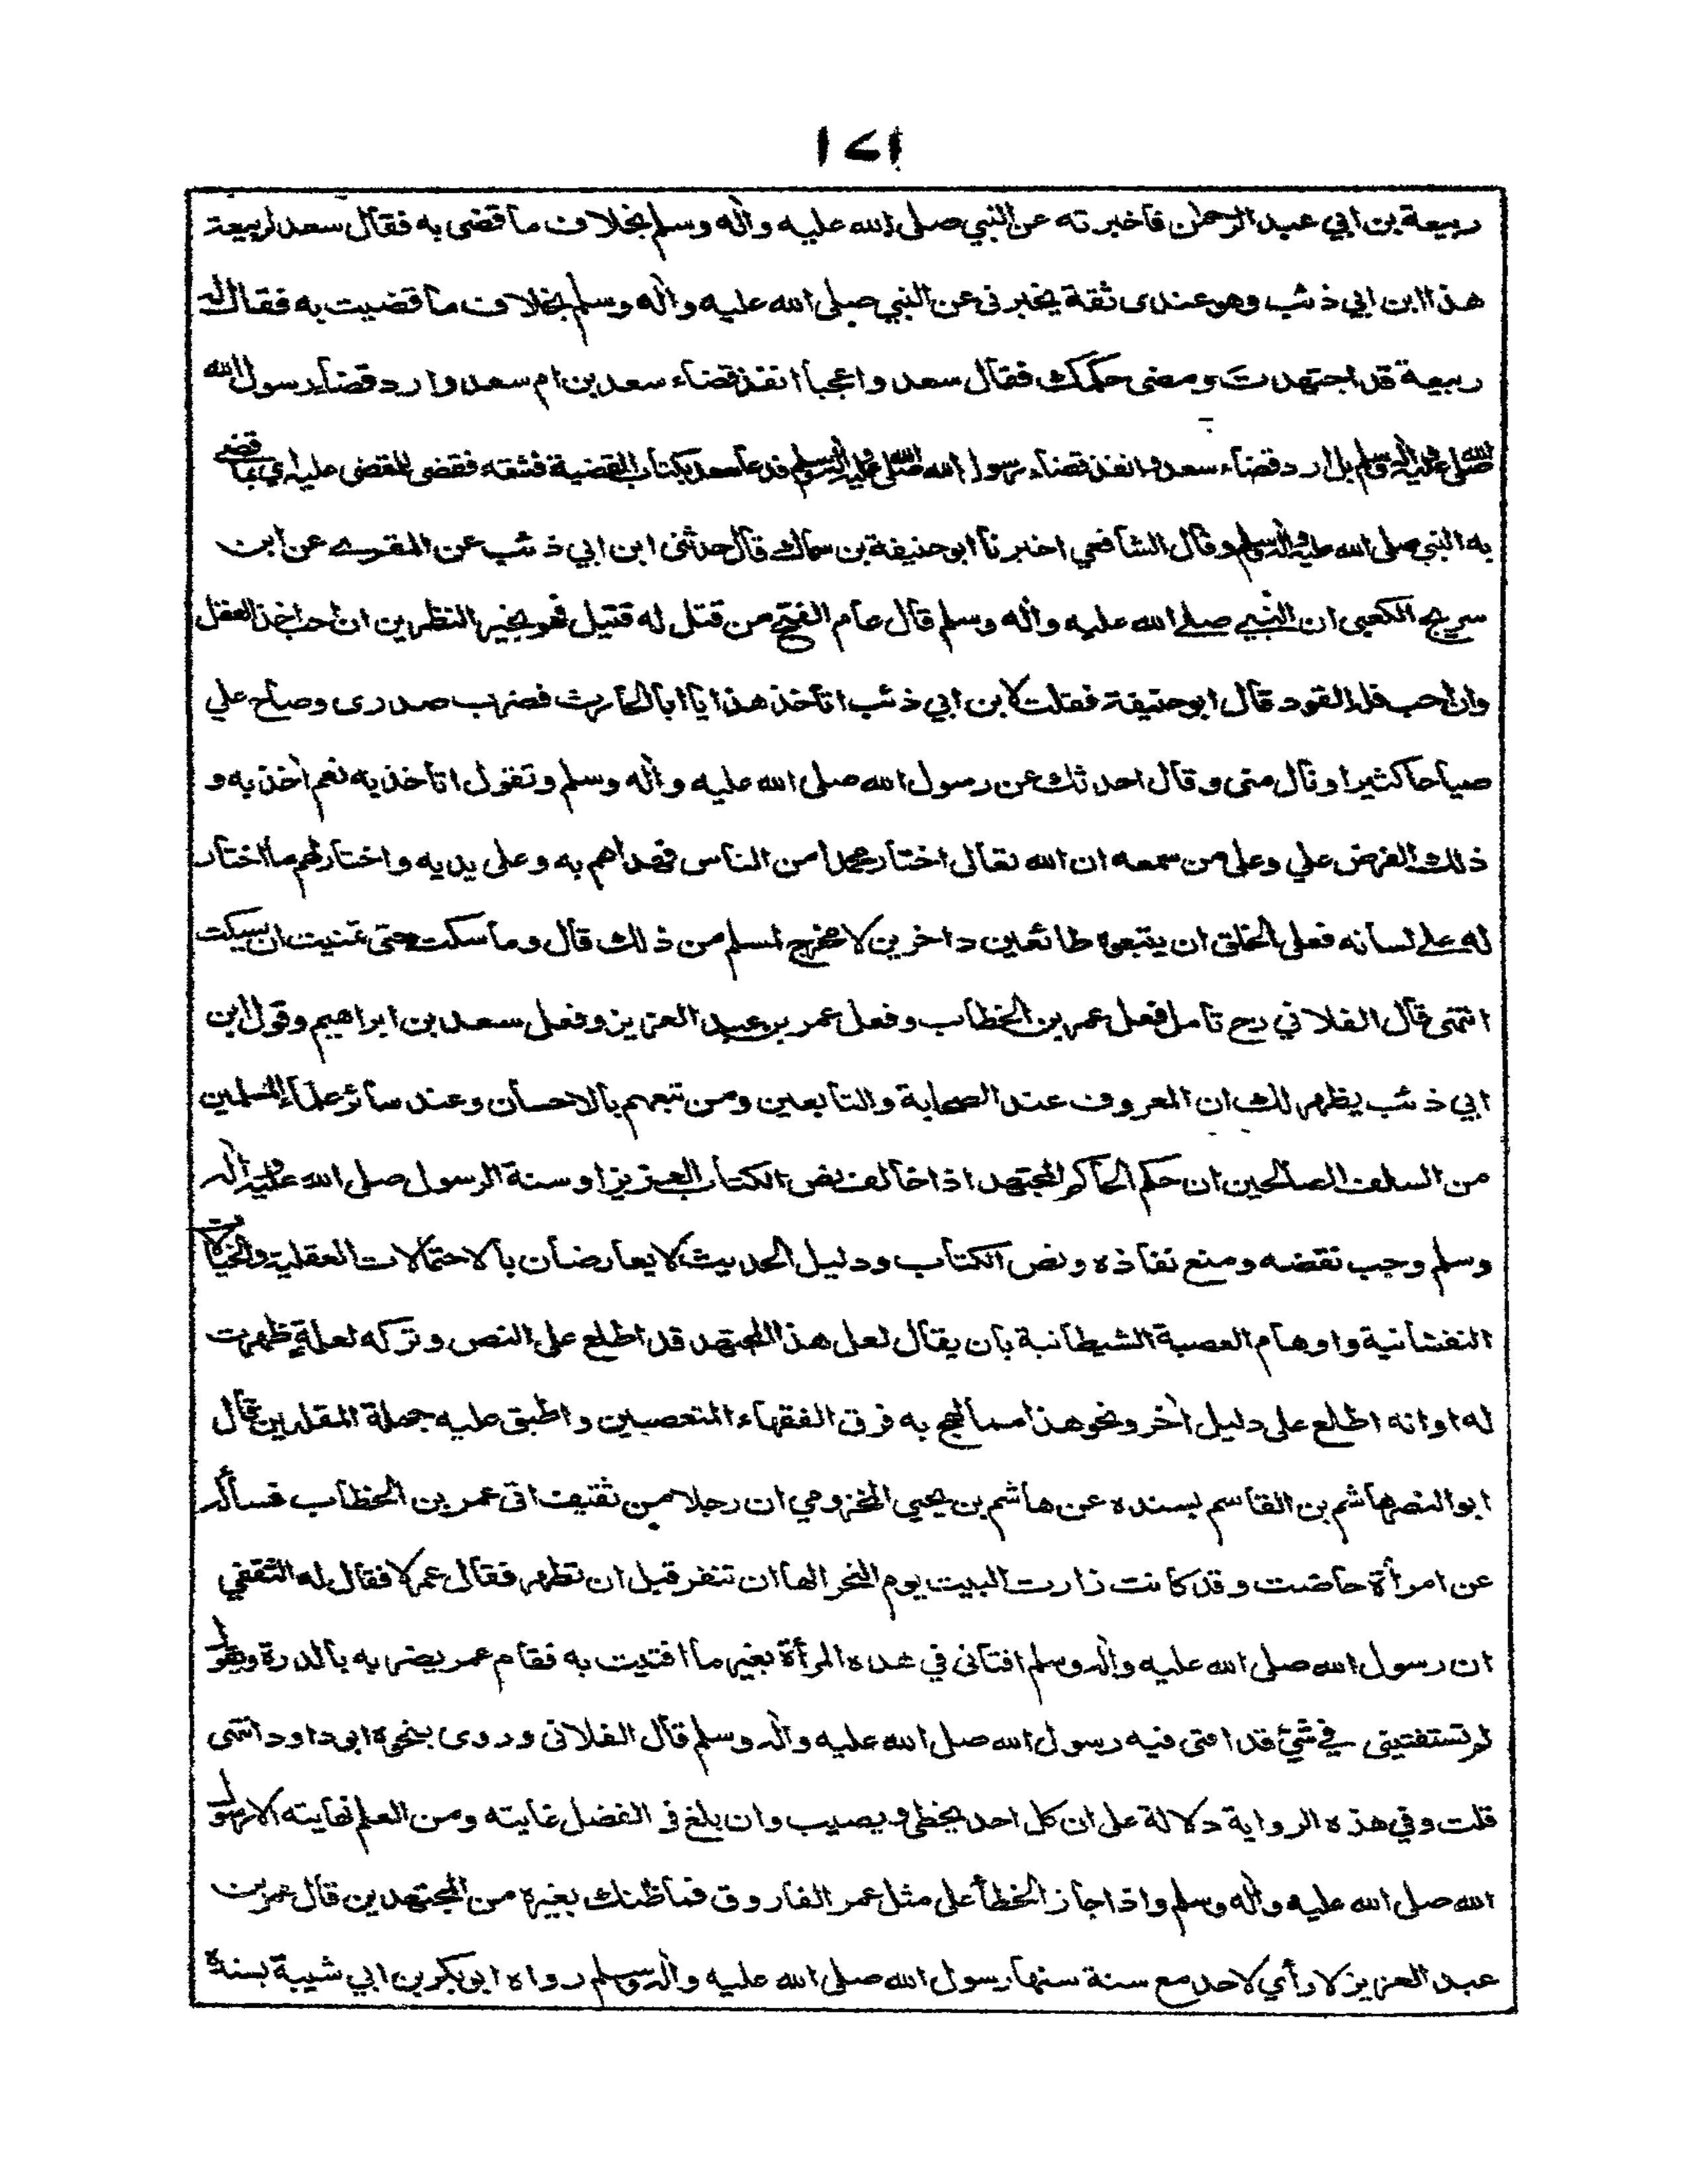 ١٧١
ربيعة بن ابي عبد الرحمن فاخبرته عن النبي صلى الله عليه واٰله وسلم بخلاف ما قضى به فقال سعد لربيعة
هذا ابن ابي ذئب وهو عندى ثقة يخبرنى عن النبي صلى الله عليه واٰله وسلم بخلاف ما قضيت به فقال له
ربيعة قد اجتهدت ومضى حكمك فقال سعد واعجبا انفذ قضاء سعد بن ام سعد وارد قضاء رسول الله
صلى الله عليه واٰله وسلم بل ارد قضاء سعد وانفذ قضاء رسول الله صلى الله عليه واٰله وسلم فدعا سعد بكتاب القضية فشقه فقضى للمقضى عليه اي بما قضى
به النبي صلى الله عليه واٰله وسلم وقال الشافعي اخبرنا ابو حنيفة بن سماك قال حدثنى ابن ابي ذئب عن المقبرے عن ابن
سريج الكعبى ان النبي صلے الله عليه واٰله وسلم قال عام الفتح من قتل له قتيل فهو بخير النظرين ان احب اخذ العقل
وان احب فله القود قال ابو حنيفة فقلت لابن ابي ذئب اتاخذ هذا يا ابا الحارث فضرب صدرى وصاح علي
صياحا كثيرا ونال منى وقال احدثك عن رسول الله صلى الله عليه واٰله وسلم وتقول اتاخذ به نعم اٰخذ به و
ذلك الفرض علي وعلى من سمعه ان الله تعالى اختار محمدا من الناس فهداهم به وعلى يديه واختار لهم ما اختار
له علے لسانه فعلى الخلق ان يتبعوه طائعين داخرين لا مخرج لمسلم من ذلك قال وما سكت حتى تمنيت ان يسكت
انتهى قال الفلاني رح تامل فعل عمر بن الخطاب وفعل عمر بن عبد العزيز وفعل سعد بن ابراهيم وقول ابن
ابي ذئب يظهر لك ان المعروف عند الصحابة والتابعين ومن تبعهم بالاحسان وعند سائر علماء المسلمين
من السلف الصالحين ان حكم الحاكم المجتهد اذا خالف نص الكتاب العزيز او سنة الرسول صلى الله عليه واٰله
وسلم وجب نقضه ومنع نفاذه ونص الكتاب ودليل الحديث لا يعارضان بالاحتمالات العقلية والخيالات
النفسانية واوهام العصبة الشيطانية بان يقال لعل هذا المجتهد قد اطلع على النص وتركه لعلة ظهرت
له او انه اطلع على دليل اٰخر ونحو هذا مما لهج به فرق الفقهاء المتعصبين واطبق عليه جهلة المقلدين قال
ابو النصر هاشم بن القاسم بسنده عن هاشم بن يحيى المخزومي ان رجلا من ثقيف اتى عمر بن الخطاب فسأله
عن امرأة حاضت وقد كانت زارت البيت يوم النحر الها ان تنفر قبل ان تطهر فقال عمر لا فقال له الثقفي
ان رسول الله صلى الله عليه واٰله وسلم افتانى في هذه المرأة بغير ما افتيت به فقام عمر يضربه بالدرة ويقول
لم تستفتينى في شئ قد افتى فيه رسول الله صلى الله عليه واٰله وسلم قال الفلانى وروى بنحوه ابو داود انتهى
قلت وفي هذه الرواية دلالة على ان كل احد يخطئ ويصيب وان بلغ في الفضل غايته ومن العلم نهايته الا رسول
الله صلى الله عليه واٰله وسلم واذا جاز الخطأ على مثل عمر الفاروق فما ظنك بغيره من المجتهدين قال عمر بن
عبد العزيز لا رأي لاحد مع سنة سنها رسول الله صلى الله عليه واٰله وسلم رواه ابو بكر بن ابي شيبة بسنده